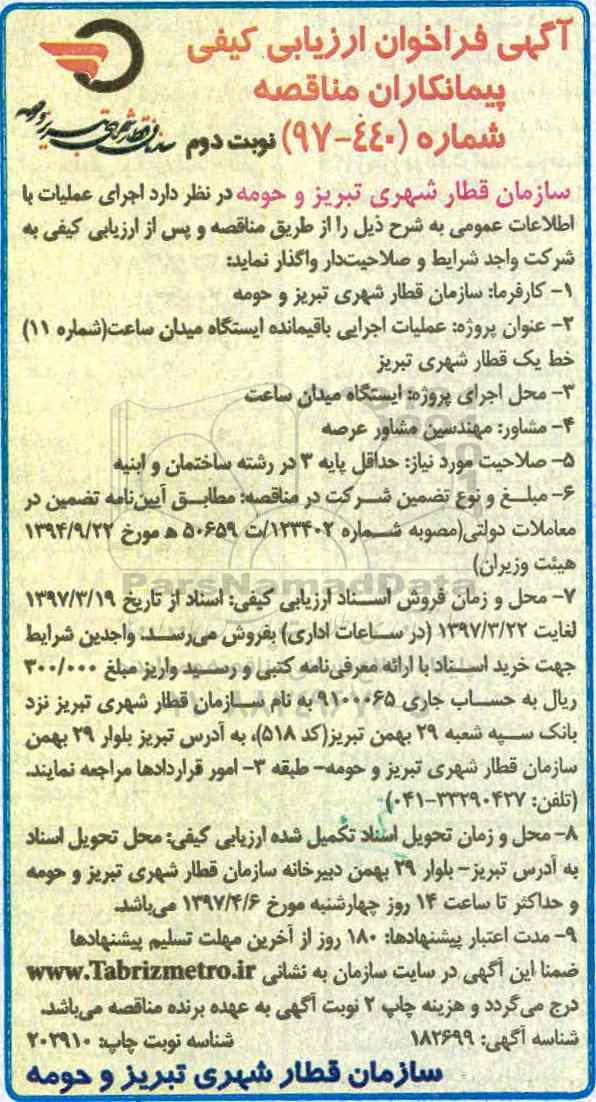 آگهی فراخوان ارزیابی کیفی
پیمانکاران مناقصه
شماره (۴۴۰-۹۷) نوبت دوم
سازمان قطار شهری تبریز و حومه
سازمان قطار شهری تبریز و حومه در نظر دارد اجرای عملیات با
اطلاعات عمومی به شرح ذیل را از طریق مناقصه و پس از ارزیابی کیفی به
شرکت واجد شرایط و صلاحیت‌دار واگذار نماید:
۱- کارفرما: سازمان قطار شهری تبریز و حومه
۲- عنوان پروژه: عملیات اجرایی باقیمانده ایستگاه میدان ساعت(شماره ۱۱)
خط یک قطار شهری تبریز
۳- محل اجرای پروژه: ایستگاه میدان ساعت
۴- مشاور: مهندسین مشاور عرصه
۵- صلاحیت مورد نیاز: حداقل پایه ۳ در رشته ساختمان و ابنیه
۶- مبلغ و نوع تضمین شرکت در مناقصه: مطابق آیین‌نامه تضمین در
معاملات دولتی(مصوبه شماره ۱۲۳۴۰۲/ت ۵۰۶۵۹ ه مورخ ۱۳۹۴/۹/۲۲
هیئت وزیران)
ParsNamadData
۷- محل و زمان فروش اسناد ارزیابی کیفی: اسناد از تاریخ ۱۳۹۷/۳/۱۹
لغایت ۱۳۹۷/۳/۲۲ (در ساعات اداری) بفروش می‌رسد. واجدین شرایط
جهت خرید اسناد با ارائه معرفی‌نامه کتبی و رسید واریز مبلغ ۳۰۰/۰۰۰
ریال به حساب جاری ۹۱۰۰۰۶۵ به نام سازمان قطار شهری تبریز نزد
بانک سپه شعبه ۲۹ بهمن تبریز(کد ۵۱۸)، به آدرس تبریز بلوار ۲۹ بهمن
سازمان قطار شهری تبریز و حومه- طبقه ۳- امور قراردادها مراجعه نمایند.
(تلفن: ۳۳۲۹۰۴۲۷-۰۴۱)
۸- محل و زمان تحویل اسناد تکمیل شده ارزیابی کیفی: محل تحویل اسناد
به آدرس تبریز- بلوار ۲۹ بهمن دبیرخانه سازمان قطار شهری تبریز و حومه
و حداکثر تا ساعت ۱۴ روز چهارشنبه مورخ ۱۳۹۷/۴/۶ می‌باشد.
۹- مدت اعتبار پیشنهادها: ۱۸۰ روز از آخرین مهلت تسلیم پیشنهادها
ضمنا این آگهی در سایت سازمان به نشانی www.Tabrizmetro.ir
درج می‌گردد و هزینه چاپ ۲ نوبت آگهی به عهده برنده مناقصه می‌باشد.
شناسه آگهی: ۱۸۲۶۹۹ شناسه نوبت چاپ: ۲۰۲۹۱۰
سازمان قطار شهری تبریز و حومه